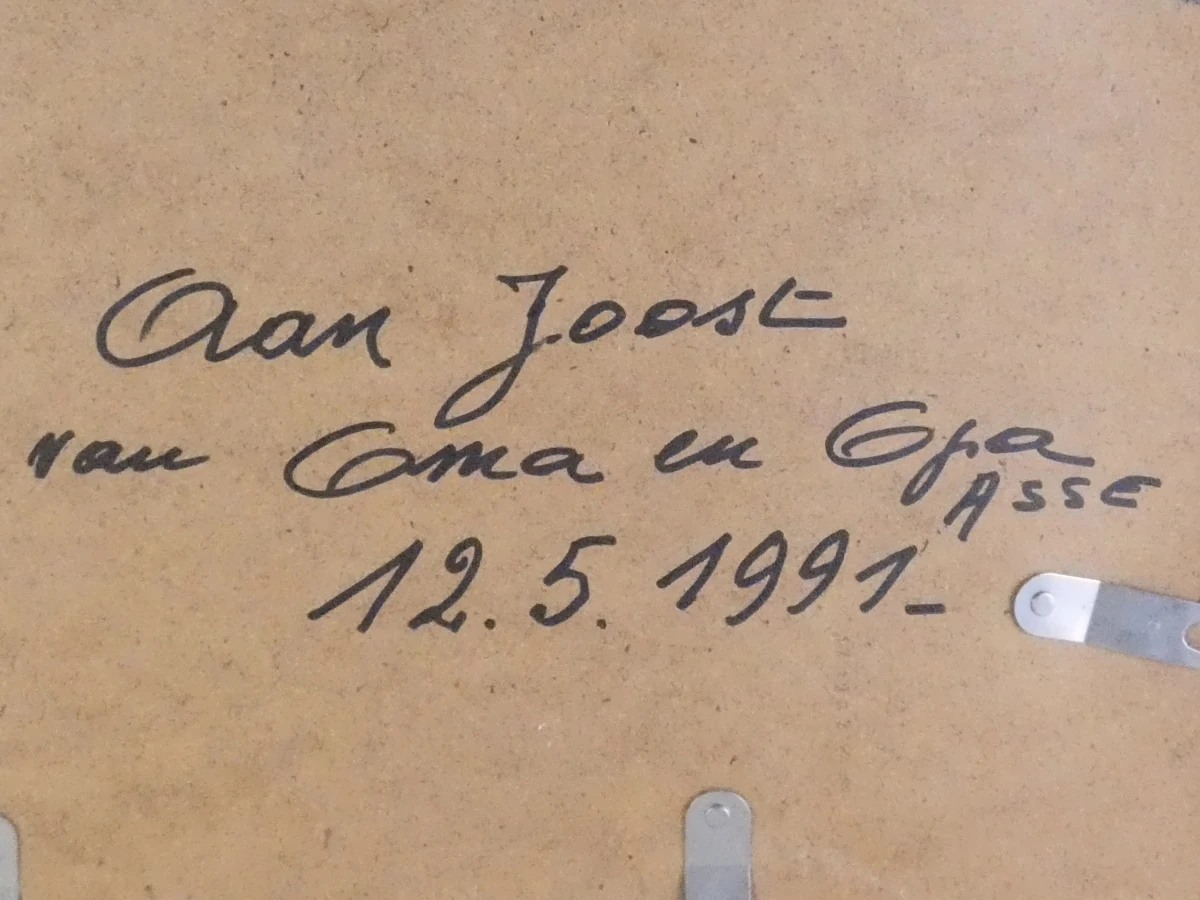 Aan Joost
van Oma en Opa
ASSE
12.5.1991-